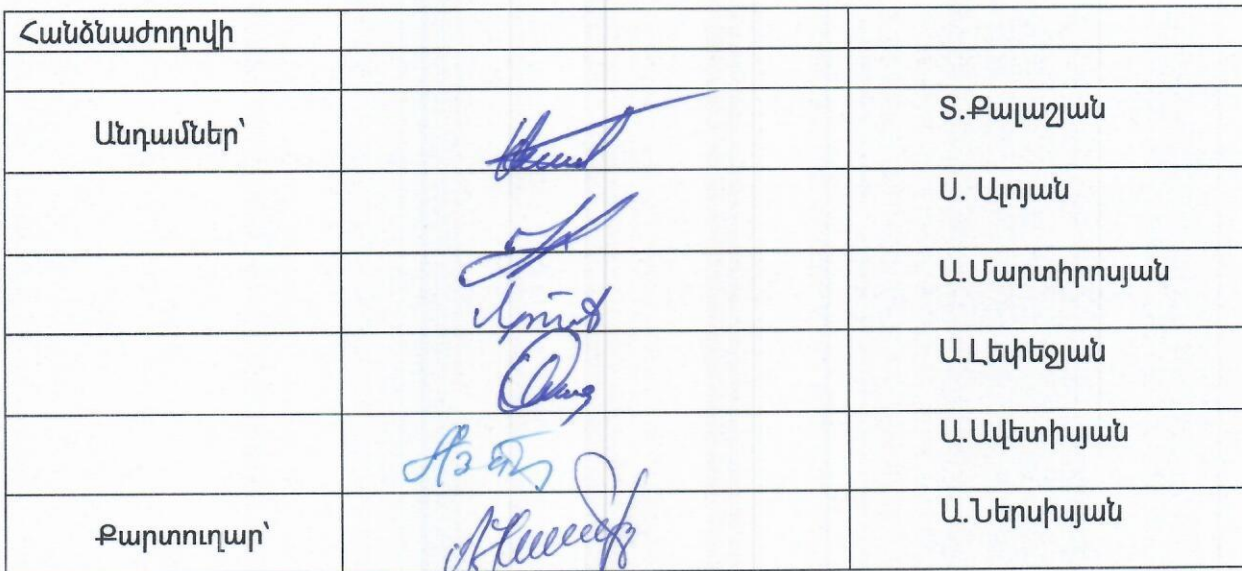 Հանձնաժողովի
Անդամներ՝
Տ.Քալաշյան
Ս. Ալոյան
Ա.Մարտիրոսյան
Ա.Լեփեջյան
Ա.Ավետիսյան
Քարտուղար՝
Ա.Ներսիսյան